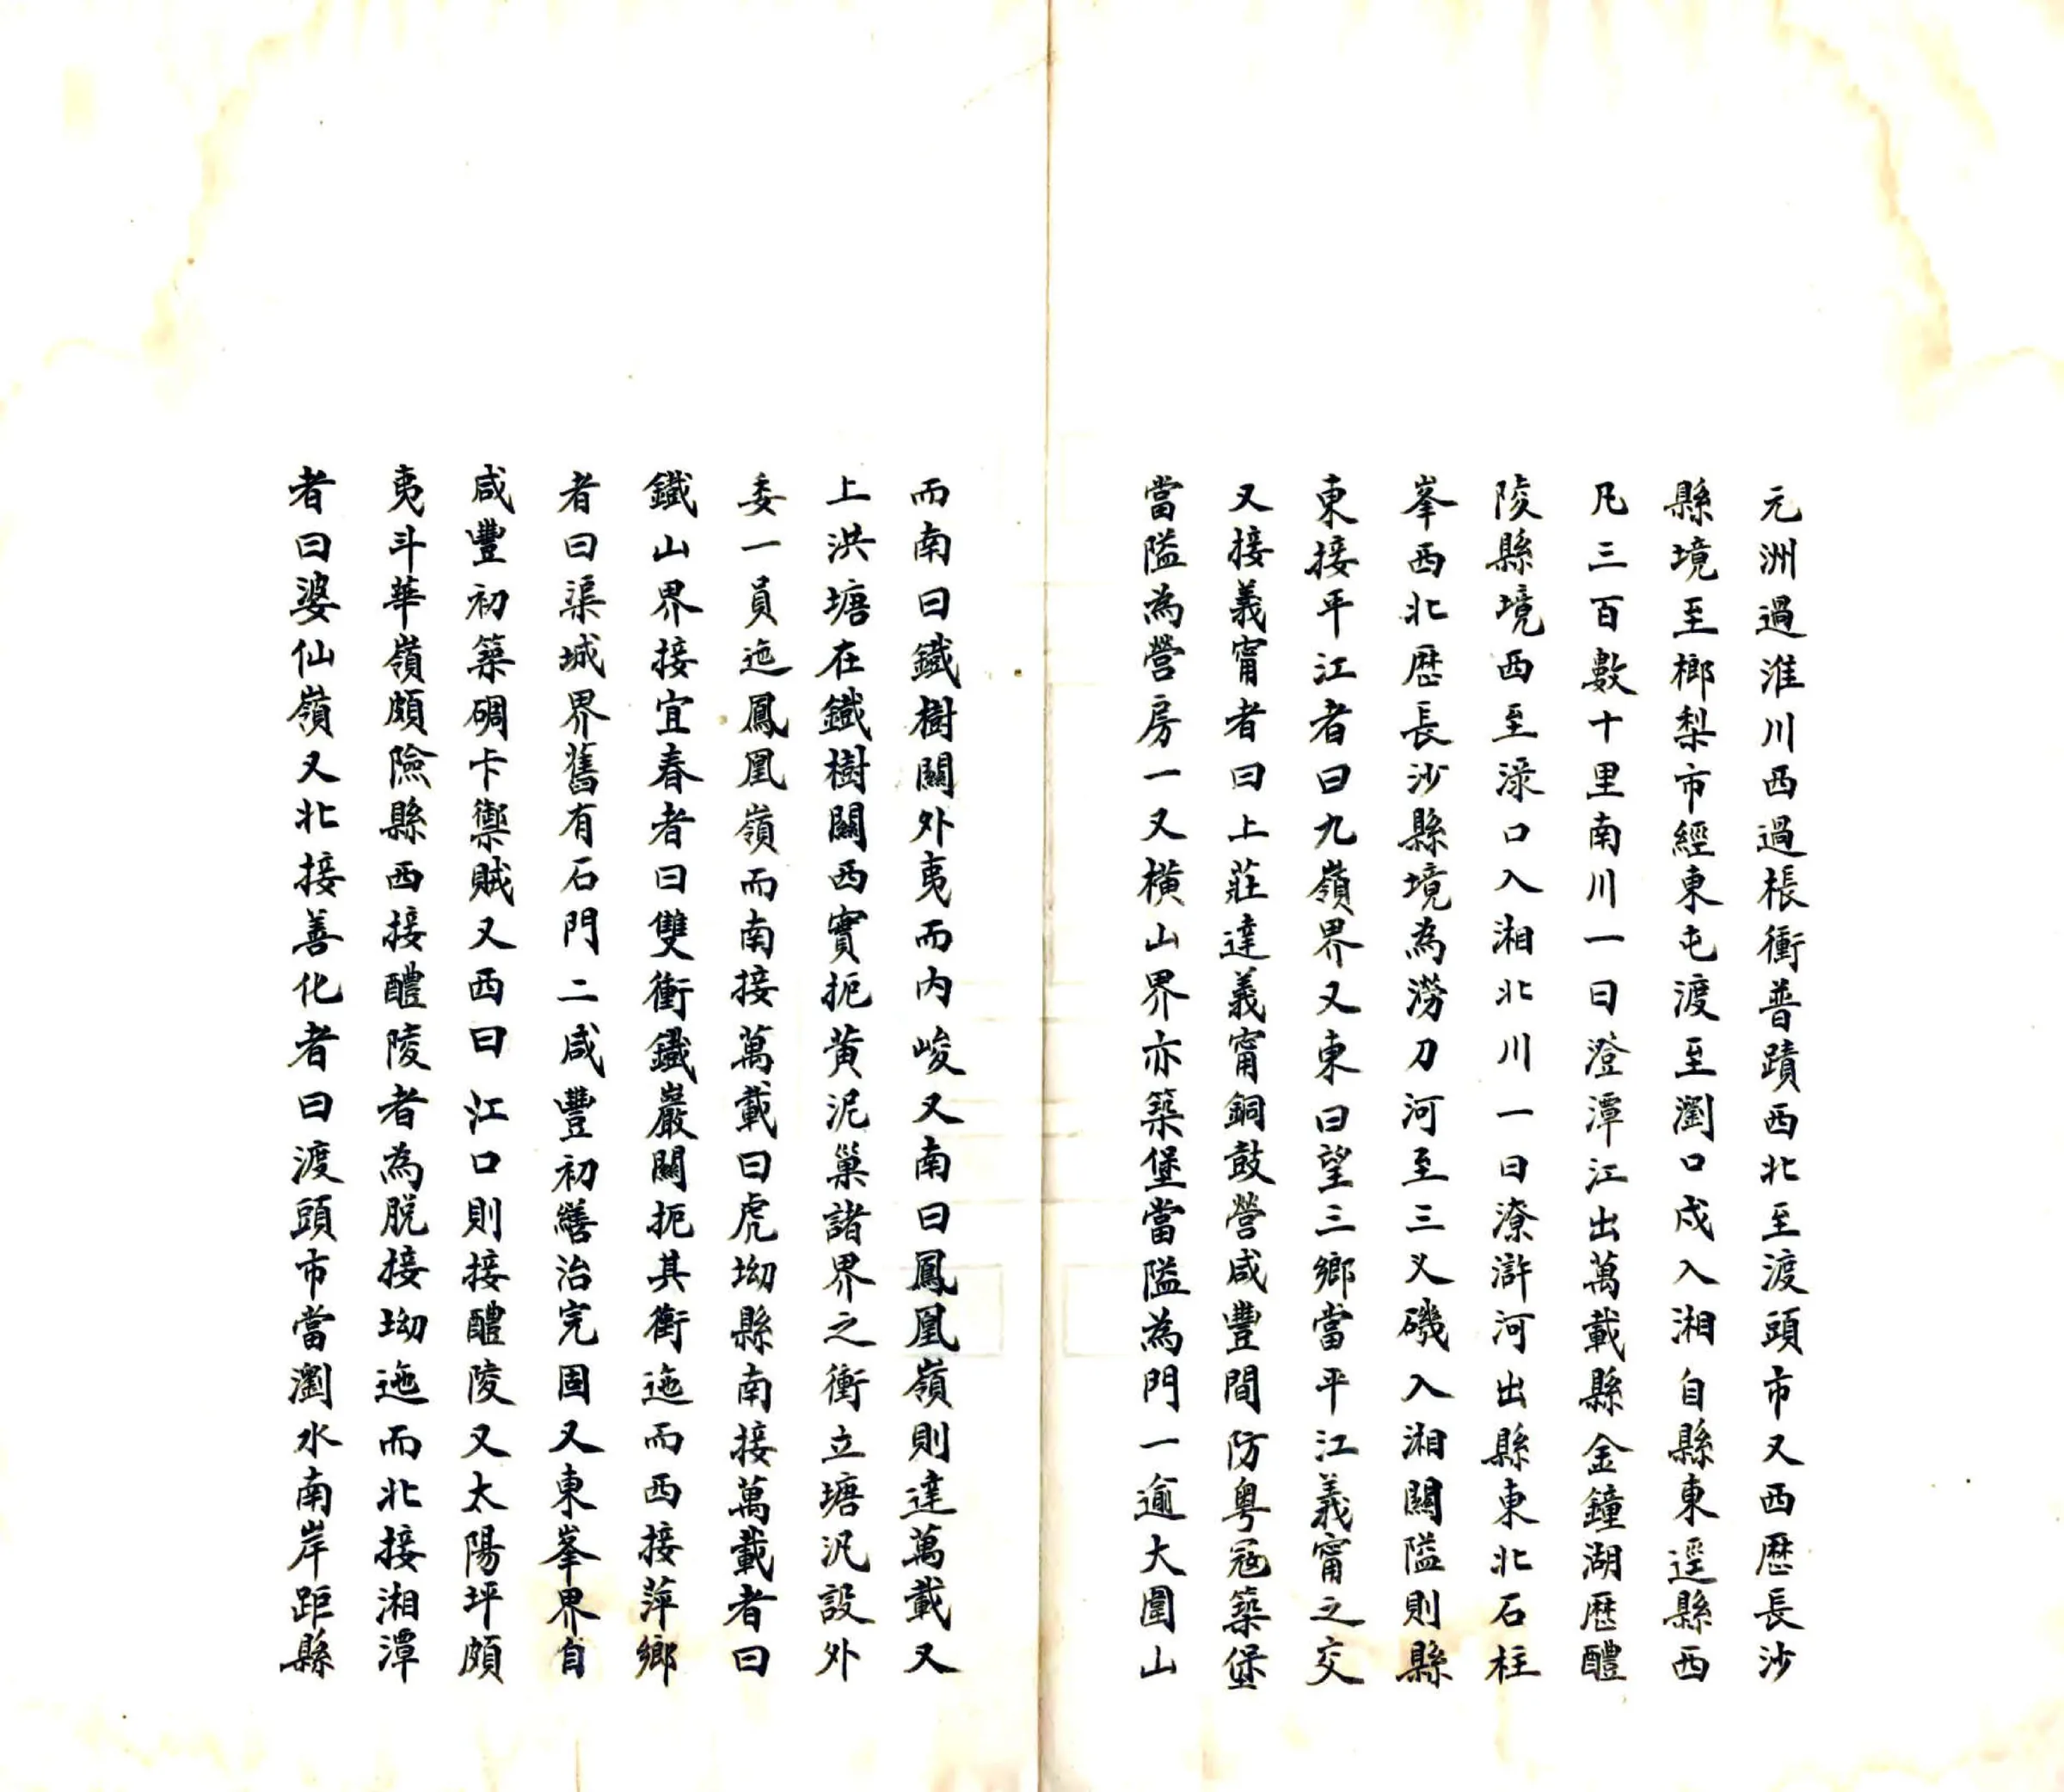 元洲過淮川西過棖衝普蹟西北至渡頭市又西歷長沙
縣境至㮾梨市經東屯渡至瀏口戍入湘自縣東逕縣西
凡三百數十里南川一曰澄潭江出萬載縣金鐘湖歷醴
陵縣境西至淥口入湘北川一曰潦滸河出縣東北石柱
峯西北歷長沙縣境為澇刀河至三义磯入湘關隘則縣
東接平江者曰九嶺界又東曰望三鄉當平江義甯之交
又接義甯者曰上莊達義甯銅鼓營咸豐間防粵寇築堡
當隘為營房一又橫山界亦築堡當隘為門一逾大圍山
而南曰鐵樹關外夷而內峻又南曰鳳凰嶺則達萬載又
上洪塘在鐵樹關西實扼黃泥巢諸界之衝立塘汛設外
委一員迤鳳凰嶺而南接萬載曰虎坳縣南接萬載者曰
鐵山界接宜春者曰雙衝鐵巖關扼其衝迤而西接萍鄉
者曰渠城界舊有石門二咸豐初繕治完固又東峯界自
咸豐初築碉卡禦賊又西曰江口則接醴陵又太陽坪頗
夷斗華嶺頗險縣西接醴陵者為脫接坳迤而北接湘潭
者曰婆仙嶺又北接善化者曰渡頭市當瀏水南岸距縣